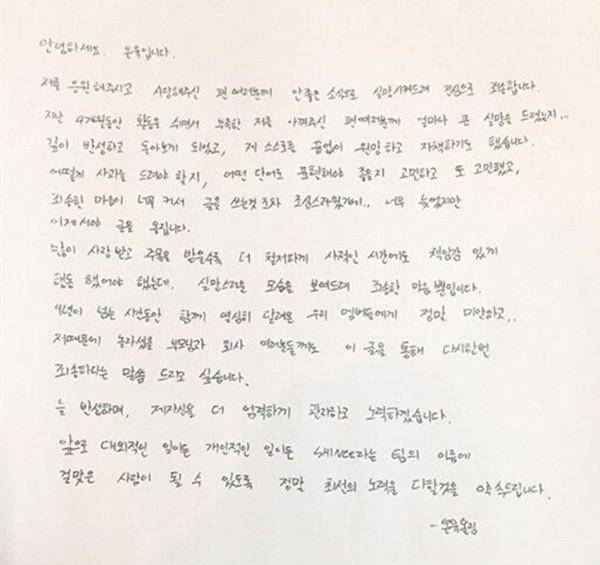 안녕하세요. 온유입니다.
저를 응원해주시고 사랑해주신 팬 여러분께 안좋은 소식으로 실망시켜드려 진심으로 죄송합니다.
지난 4개월동안 활동을 쉬면서 부족한 저를 아껴주신 팬여러분께 얼마나 큰 실망을 드렸는지...
깊이 반성하고 돌아보게 되었고, 제 스스로를 끝없이 원망하고 자책하기도 했습니다.
어떻게 사과를 드려야 할지, 어떤 단어로 표현해야 좋을지 고민하고 또 고민했고,
죄송한 마음이 너무 커서 글을 쓰는것 조차 조심스러웠기에.. 너무 늦었지만
이제서야 글을 올립니다.
많이 사랑 받고 주목을 받을수록 더 철저하게 사적인 시간에도 책임감 있게
행동 했어야 했는데. 실망스러운 모습을 보여드려 죄송한 마음뿐입니다.
9년이 넘는 시간동안 함께 열심히 달려온 우리 멤버들에게 정말 미안하고..
저때문에 놀라셨을 부모님과 회사 여러분들께도 이 글을 통해 다시한번
죄송하다는 말씀 드리고 싶습니다.
늘 반성하며, 제자신을 더 엄격하게 관리하고 노력하겠습니다.
앞으로 대외적인 일이든 개인적인 일이든 SHINee라는 팀의 이름에
걸맞은 사람이 될 수 있도록 정말 최선의 노력을 다할것을 약속드립니다.
-온유올림